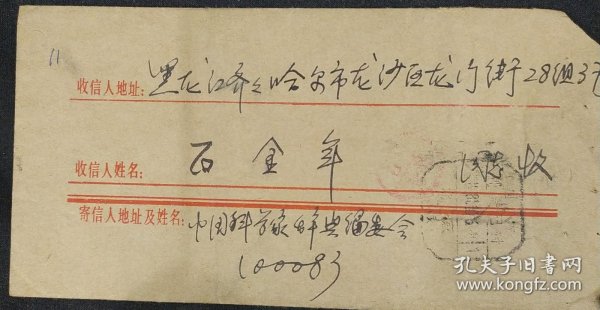 11
收信人地址:黑龙江齐齐哈尔市龙沙区龙门街28组3号
收信人姓名: 石金年 同志收
寄信人地址及姓名:中国科学家辞典编委会
100083
孔夫子旧书网
www.kongfz.com